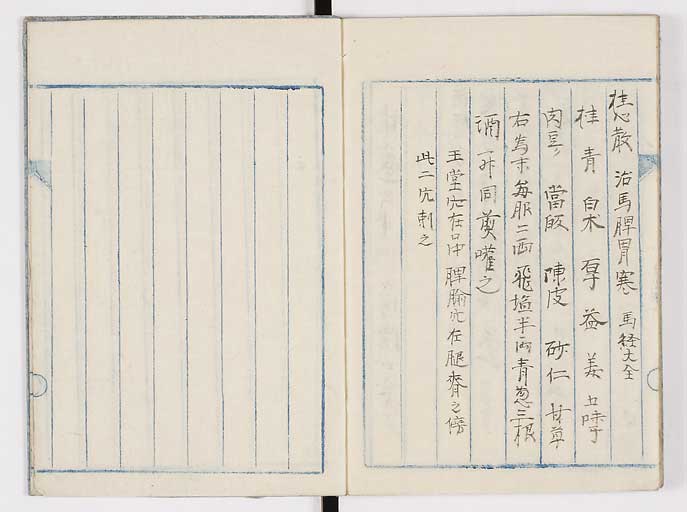 桂心散 治馬脾胃寒 馬経大全
桂 青 白朮 厚 益 姜 五味子
肉豆 當皈 陳皮 砂仁 甘草
右為末毎服二両飛塩半両青葱三根
酒一升同煎嚾之
玉堂穴在口中 脾腧穴在腿脊之傍
此二穴刺之